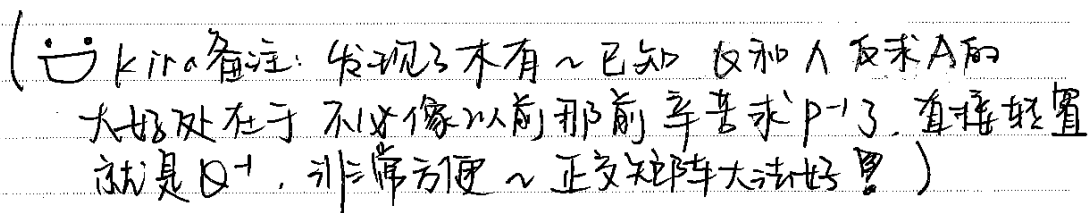 (kira备注：发现了木有～已知 Q和Λ 反求A的
大好处在于 不必像以前那前辛苦求P⁻¹了，直接转置
就是Q⁻¹，非常方便～正交矩阵大法好！)